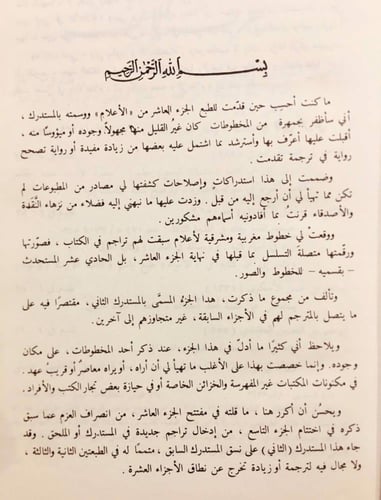 بسم الله الرحمن الرحيم
ما كنت أحسب حين قدّمت للطبع الجزء العاشر من «الأعلام» ووسمته بالمستدرك ،
أني سأظفر بجمهرة من المخطوطات كان غيرُ القليل منها مجهولاً وجوده أو ميؤوسًا منه ،
أقبلت عليها أعرّف بها وأسترشد بما اشتمل عليه بعضها من زيادة مفيدة أو رواية تصحح
رواية في ترجمة تقدمت .
وضممت إلى هذا استدراكاتٍ وإصلاحات كشفتها لي مصادر من المطبوعات لم
تكن مما تهيأ لي أن أرجع إليه من قبل . وزدت عليها ما نبهني إليه فضلاء من نزهاء النَّقَدة
والأصدقاء قرنتُ بما أفادونيه أسماءهم مشكورين .
ووقعتْ لي خطوط مغربية ومشرقية لأعلام سبقت لهم تراجم في الكتاب ، فصوّرتها
ورقّمتها متصلةَ التسلسل بما قبلها في نهاية الجزء العاشر، بل الحادي عشر المستحدث
- بقسميه - للخطوط والصور.
وتألف من مجموع ما ذكرت ، هذا الجزءُ المسمَّى بالمستدرك الثاني، مقتصرًا فيه على
ما يتصل بالمترجم لهم في الأجزاء السابقة، غير متجاوزهم إلى آخرين .
ويلاحظ أني كثيرًا ما أدلّ في هذا الجزء، عند ذكر أحد المخطوطات ، على مكان
وجوده . وإنما خصصت بهذا على الأغلب ما تهيأ لي أن أراه، أو يراه معاصر أو قريب عهد .
في مكنونات المكتبات غير المفهرسة والخزائن الخاصة أو في حيازة بعض تجار الكتب والأفراد.
ويحسُن أن أكرر هنا ، ما قلته في مفتتح الجزء العاشر، من انصراف العزم عما سبق
ذكره في اختتام الجزء التاسع ، من إدخال تراجم جديدة في المستدرك أو الملحق . وقد
جاء هذا المستدرك (الثاني) على نسق المستدرك السابق ، متممًا له في الطبعتين الثانية والثالثة ،
ولا مجال فيه لترجمة أو زيادة تخرج عن نطاق الأجزاء العشرة .